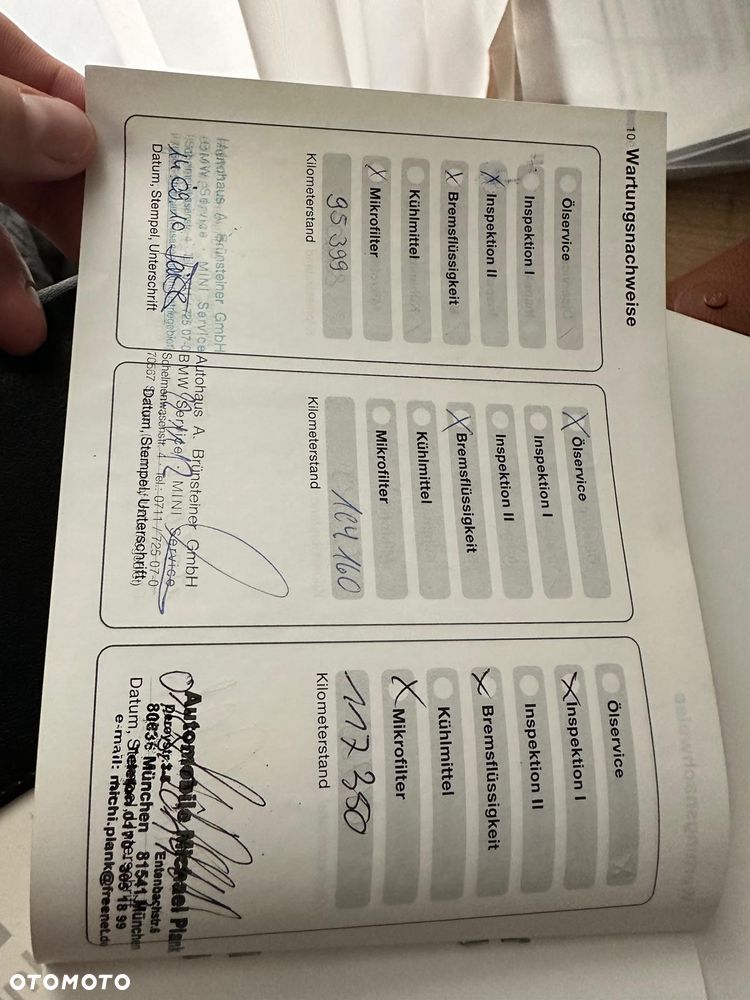 10 Wartungsnachweise
Ölservice
Inspektion I
X Inspektion II
X Bremsflüssigkeit
Kühlmittel
X Mikrofilter
95399
Kilometerstand
Autohaus A. Brünsteiner GmbH
BMW Service - MINI Service
725 07-0
14.09.10
Datum, Stempel, Unterschrift
X Ölservice
Inspektion I
Inspektion II
X Bremsflüssigkeit
Kühlmittel
Mikrofilter
104160
Kilometerstand
Autohaus A. Brünsteiner GmbH
BMW Service MINI Service
Schelmenwasenstr. 4 - Tel.: 0711/725 07-0
70567
Datum, Stempel, Unterschrift
Ölservice
X Inspektion I
Inspektion II
X Bremsflüssigkeit
Kühlmittel
X Mikrofilter
117350
Kilometerstand
Automobile Michael Plank
Entenbachstr.6
80636 München 81541 München
Datum,
e-mail: michi.plank@freenet.de
OTOMOTO